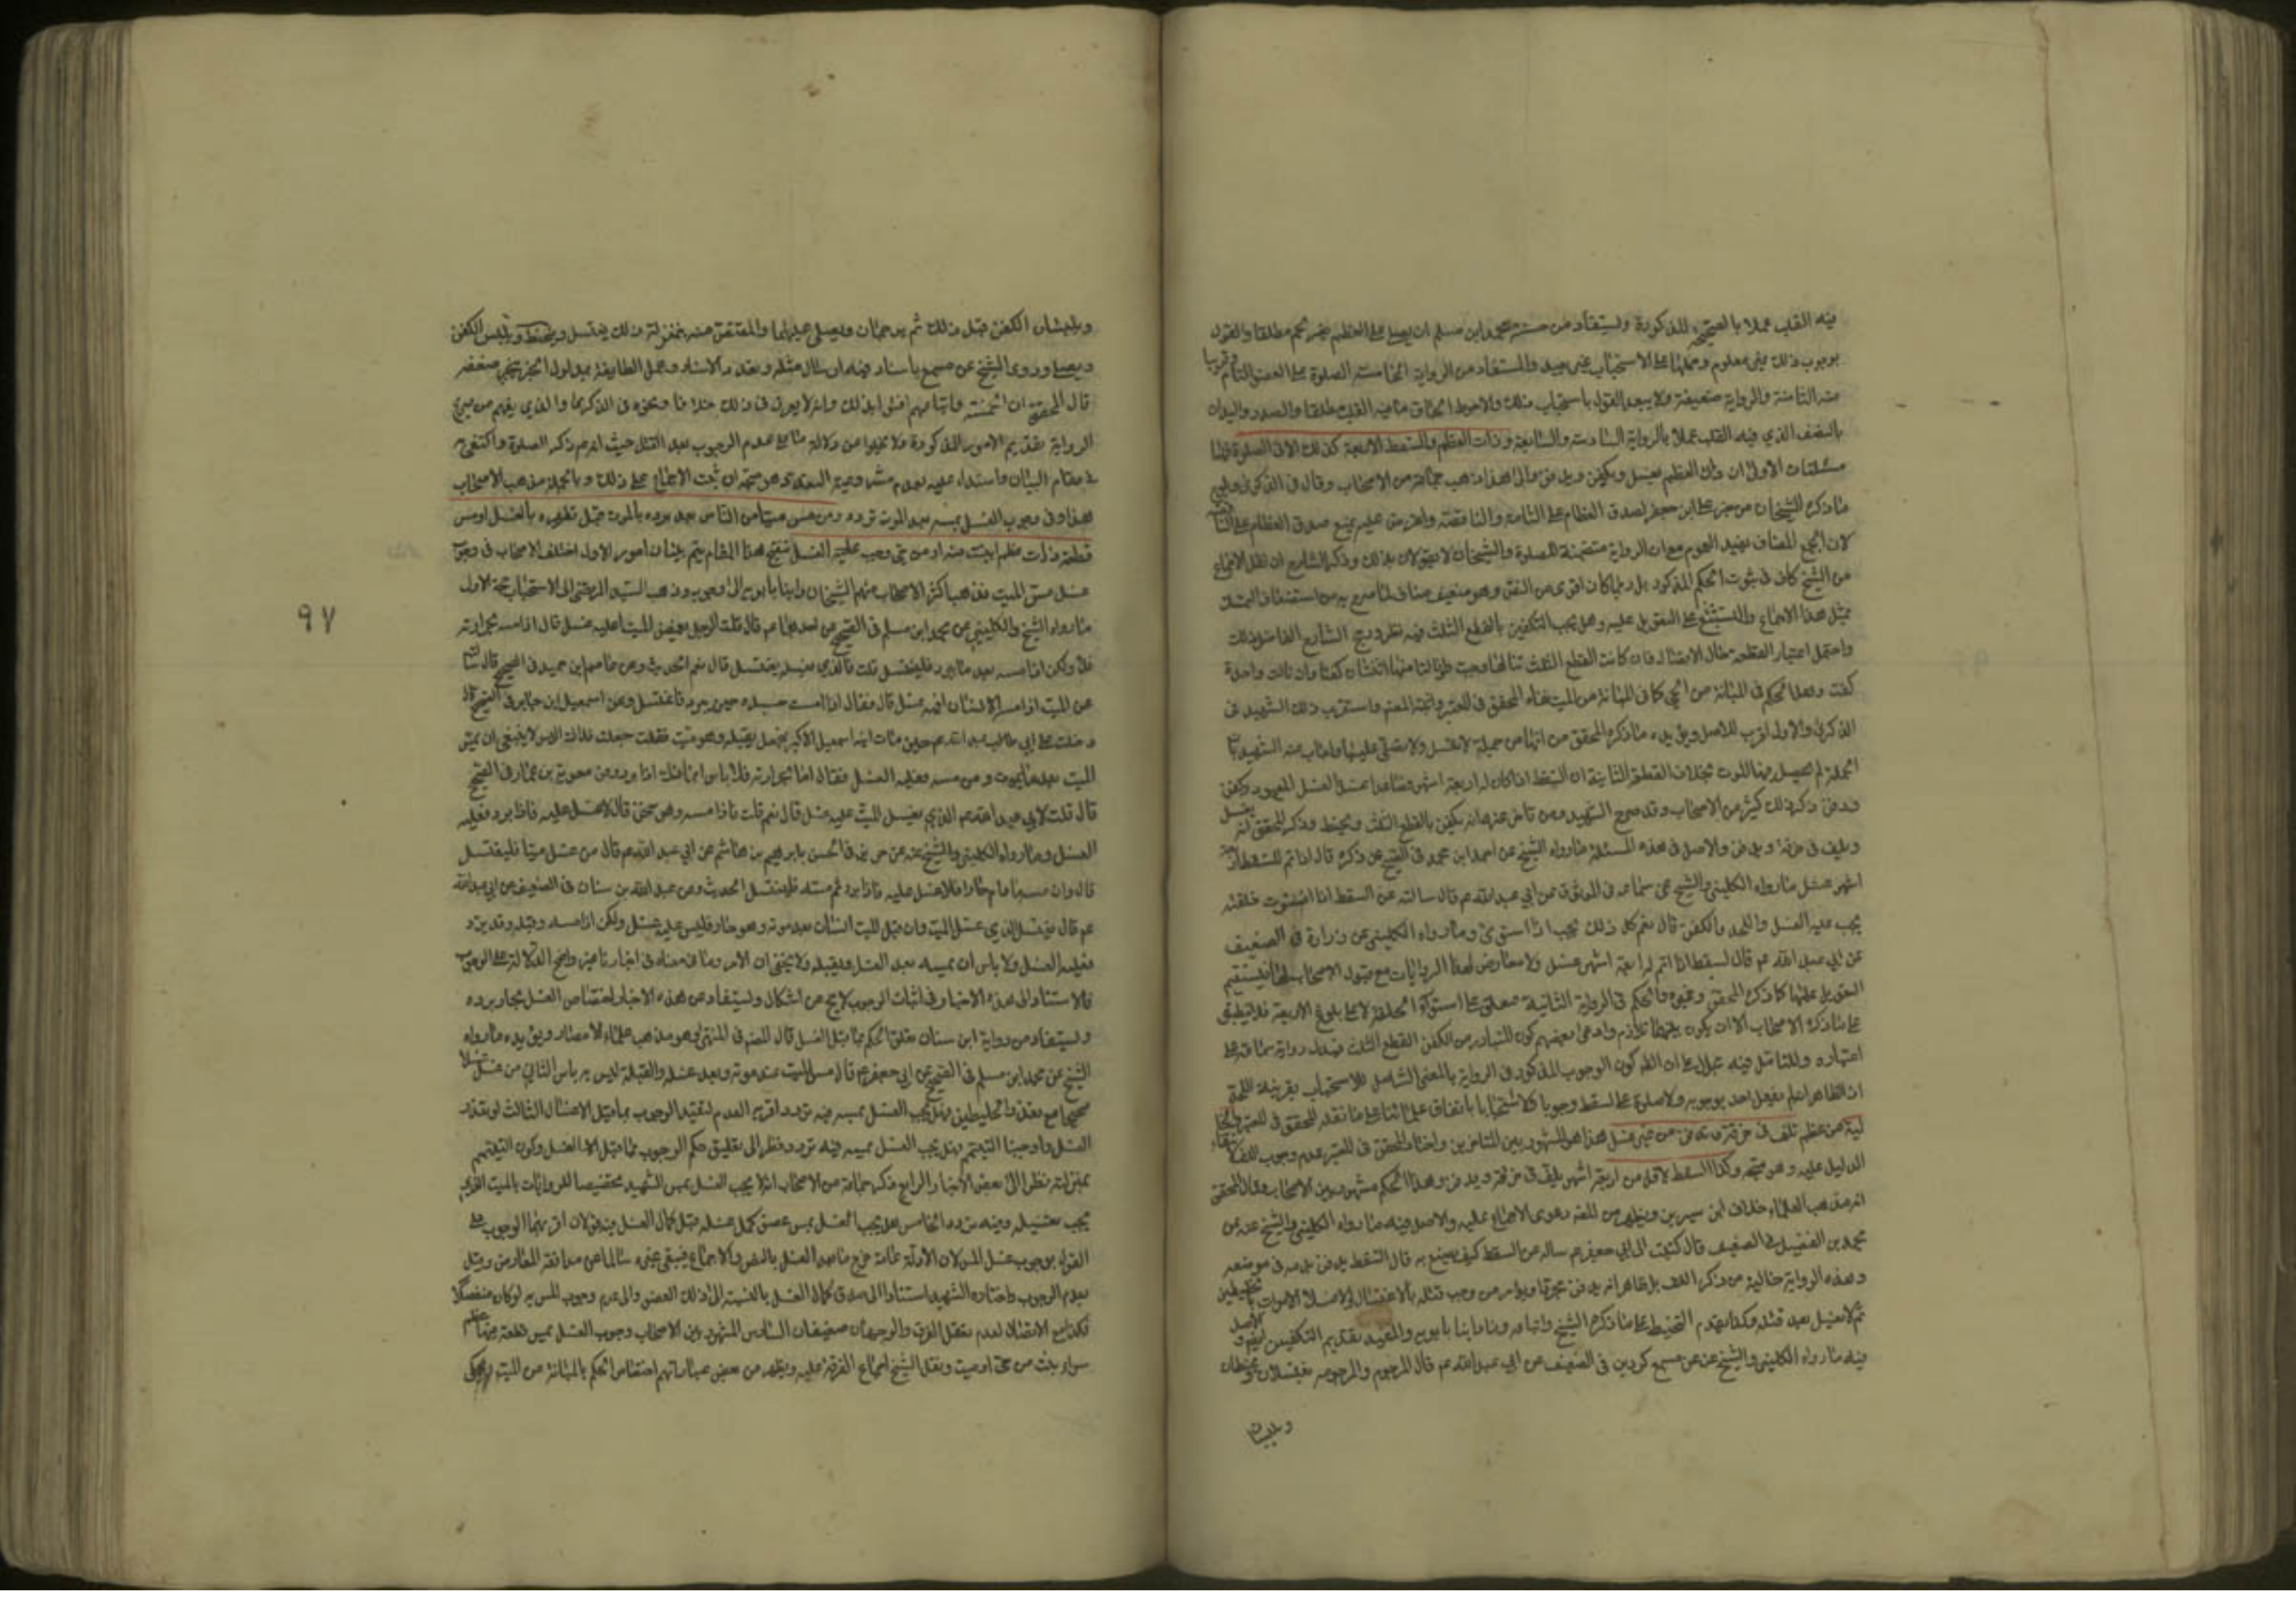 فيه القلب عملا بالصحيحة المذكورة ويستفاد من حسنة محمد ابن مسلم ان يصلى على العظم بغير لحم مطلقا والقول
بوجوب ذلك غير معلوم وحملها على الاستحباب غير بعيد والمستفاد من الرواية الخامسة الصلوة على العضو التام وقريبا
منه الثامنة والرواية ضعيفة ولا يبعد القول باستحباب ذلك والاحوط الحاق ما فيه القلب مطلقا والصدر واليدان
بالنصف الذي فيه القلب عملا بالرواية السادسة والسابعة وذات العظم والسقط لاربعة كذلك الا في الصلوة فهنا
مسئلتان الاولى ان ذات العظم يغسل ويكفن ويدفن والى هذا ذهب جماعة من الاصحاب وقال في الذكرى
ما ذكره الشيخان من خبر علي ابن جعفر لصدق العظام على التامة والناقصة واعترض عليه بمنع صدق العظام على الناقصة
لان الجمع المضاف يفيد العموم مع ان الرواية متضمنة للصلوة والشيخان لا يقولان بذلك وذكر الشارح ان نقل الاجماع
من الشيخ كاف في ثبوت الحكم المذكور بل ربما كان اقوى من النص وهو ضعيف مناف لما صرح به من استفتاء التمسك
بمثل هذا الاجماع والتعويل عليه وهل يجب التكفين بالقطع الثلث فيه نظر ورجح الشارح الفاضل ذلك
واحتمل اعتبار القطعة حال الاتصال فان كانت القطع الثلث تنالها وجبت وان نالها منها اثنتان كفتا وان نالت واحدة
كفت وهل الحكم في المبانة من الحي كما في المبانة من الميت نفاه المحقق في المعتبر واستقرب ذلك الشهيد في
الذكرى والاول اقرب للاصل ويؤيده ما ذكره المحقق من انها من جملة لا تغسل ولا يصلى عليها واجاب عنه الشهيد بان
الجملة لم يحصل فيها الموت بخلاف القطعة الثانية ان السقط اذا كان له اربعة اشهر فصاعدا غسل الغسل المعهود وكفن
ودفن ذكر ذلك كثير من الاصحاب وقد صرح الشهيد ومن تاخر عنه بانه يكفن بالقطع الثلث ويحنط وذكر المحقق انه يغسل
ويلف في خرقة ويدفن والاصل في هذه المسئلة ما رواه الشيخ عن احمد ابن محمد في الصحيح عن ذكره قال اذا تم للسقط اربعة
اشهر غسل ما رواه الكليني والشيخ عن سماعه في الموثق عن ابي عبد الله عم قال سالته عن السقط اذا استوت خلقته
يجب عليه الغسل واللحد والكفن قال نعم كل ذلك يجب اذا استوى وما رواه الكليني عن زرارة في الضعيف
عن ابي عبد الله عم قال السقط اذا تم له اربعة اشهر غسل ولا معارض لهذا الروايات مع قبول الاصحاب لها فيستقيم
التعويل عليها كما ذكره المحقق وغيره والحكم في الرواية الثانية معلق على استواء الخلقة لا على بلوغ الاربعة فلا ينطبق
على ما ذكره الاصحاب الا ان يكون بينهما تلازم وادعى بعضهم كون المتبادر من الكفن القطع الثلث فيدل رواية سماعة على
اعتباره وللتامل فيه مجال على ان الظ كون الوجوب المذكور في الرواية بالمعنى الشامل للاستحباب بقرينة اللحد
اذ الظاهر انه لم يقل احد بوجوبه ولا صلوة على السقط وجوبا كلا استحبابا باتفاق علمائنا على ما نقله المحقق في المعتبر
لية من عظم تلف في خرقة وتدفن من غير غسل هذا هو المشهور بين المتاخرين واختار المحقق في المعتبر عدم وجوب اللف لانتفاء
الدليل عليه وهو متجه وكذا السقط لاقل من اربعة اشهر يلف في خرقة ويدفن وهذا الحكم مشهور بين الاصحاب وقال المحقق
انه مذهب العلماء خلاف ابن سيرين ويظهر من المنتهى دعوى الاجماع عليه والاصل فيه ما رواه الكليني والشيخ عنه عن
محمد بن الفضيل في الضعيف قال كتبت الى ابي جعفر عم ساله عن السقط كيف يصنع به قال السقط يدفن بدمه في موضعه
وهذه الرواية خالية من ذكر اللف بل ظاهر انه يدفن مجردا ويؤمر من وجب قتله بالاغتسال اولا غسل الاموات بالخليطين
ثم لا يغسل بعد قتله وكذا يقدم التحنيط على ما ذكره الشيخ واتباعه وزاد ابنا بابويه والمفيد تقديم التكفين ايضا والاصل
فيه ما رواه الكليني والشيخ عنه عن مسمع كردين في الضعيف عن ابي عبد الله عم قال المرجوم والمرجومه يغتسلان ويحنطان
ويلبسان
ويلبسان الكفن قبل ذلك ثم يرجمان ويصلى عليهما والمقتص منه بمنزلة ذلك يغتسل ويحنط ويلبس الكفن
ويصلى وروى الشيخ عن مسمع باسناد فيه ارسال مثله وبعد والاسناد وعمل الطايفة بمدلول الخبر يجبر ضعفه
قال المحقق ان الخمسة واتباعهم افتوا بذلك وانه لا يعرف في ذلك خلافا ونحوه في الذكرى والذي يفهم من صريح
الرواية تقديم الامور المذكورة ولا يخلوا من دلالة ما على عدم الوجوب بعد القتل حيث انه ذكر الصلوة واكتفى به
في مقام البيان واستدل عليه بعدم مشروعية التعدد وهو متجه ان ثبت الاجماع على ذلك وبالجملة مذهب الاصحاب
هذا وفي وجوب الغسل بمسه بعد الموت تردد ومن مس ميتا من الناس بعد برده بالموت قبل تطهيره بالغسل او مس
قطعة ذات عظم ابينت منه او من حي وجب عليه الغسل تنقيح هذا المقام يتم ببيان امور الاول اختلف الاصحاب في وجوب
غسل مس الميت فذهب اكثر الاصحاب منهم الشيخان وابنا بابويه الى وجوبه وذهب السيد المرتضى الى الاستحباب حجة الاول
ما رواه الشيخ والكليني عن محمد ابن مسلم في الصحيح عن احدهما عم قال قلت الرجل يغمض الميت اعليه غسل قال اذا مسه بحرارته
فلا ولكن اذا مسه بعد ما يبرد فليغتسل قلت فالذي يغسله يغتسل قال نعم الحديث وعن عاصم ابن حميد في الصحيح قال سالته
عن الميت اذا مسه الانسان افيه غسل قال فقال اذا امست جسده حين يبرد فاغتسل وعن اسمعيل ابن جابر في الصحيح قال
دخلت على ابي عبد الله عم حين مات ابنه اسمعيل الاكبر فجعل يقبله وهو ميت فقلت جعلت فداك اليس لا ينبغي ان يمس
الميت بعد ما يموت ومن مسه فعليه الغسل فقال اما بحرارته فلا باس انما ذلك اذا برد وعن معوية بن عمار في الصحيح
قال قلت لابي عبد الله عم الذي يغسل الميت عليه غسل قال نعم قلت فاذا مسه وهو سخن قال لا غسل عليه فاذا برد فعليه
الغسل وما رواه الكليني والشيخ عنه عن حريز في الحسن بابرهيم بن هاشم عن ابي عبد الله عم قال من غسل ميتا فليغتسل
قال وان مسه ما دام حارا فلا غسل عليه فاذا برد ثم مسه فليغتسل الحديث وعن عبد الله بن سنان في الضعيف عن ابي عبد الله
عم قال يغتسل الذي غسل الميت وان قبل الميت انسان بعد موته وهو حار فليس عليه غسل ولكن اذا مسه وقبله وقد برد
فعليه الغسل ولا باس ان يمسه بعد الغسل ويقبله ولا يخفى ان الامر وما في معناه في اخبارنا غير واضح الدلالة على الوجوب
فالاستناد الى هذه الاخبار في اثبات الوجوب لا يخ من اشكال ويستفاد من هذه الاخبار اختصاص الغسل بحال برده
ويستفاد من رواية ابن سنان تعلق الحكم بما قبل الغسل قال المص في المنتهى وهو مذهب علماء الامصار ويؤيده ما رواه
الشيخ عن محمد ابن مسلم في الصحيح عن ابي جعفر عم قال مس الميت عند موته وبعد غسله والقبلة ليس به باس الثاني من غسل غسلا
صحيحا مع فقد الخليطين هل يجب الغسل بمسه فيه تردد اقربه العدم لتقييد الوجوب بما قبل الاغتسال الثالث لو تعذر
الغسل واوجبنا التيمم فهل يجب الغسل بمسه فيه تردد نظرا الى تعليق حكم الوجوب بما قبل الغسل وكون التيمم
بمنزلته نظرا الى بعض الاخبار الرابع ذكر جماعة من الاصحاب انه لا يجب الغسل بمس الشهيد تخصيصا للروايات بالميت الذي
يجب تغسيله وفيه تردد الخامس هل يجب الغسل بمس عضو كمل غسله قبل كمال الغسل فيه قولان اقربهما الوجوب على
القول بوجوب غسل المس لان الادلة عامة خرج ما بعد الغسل بالنص والاجماع فيبقى غيره سالما عن مدافعة المعارض وقيل
بعدم الوجوب واختاره الشهيد استنادا الى صدق كمال الغسل بالنسبة الى ذلك العضو والى عدم وجوب المس به لو كان منفصلا
فكذا مع الاتصال لعدم تعقل الفرق والوجهان ضعيفان السادس المشهور بين الاصحاب وجوب الغسل بمس قطعة فيها عظم
سواء بينت من حي او ميت ونقل الشيخ اجماع الفرقة عليه ويظهر من بعض عباراتهم اختصاص الحكم بالمبانة من الميت ويحكى
٩٧